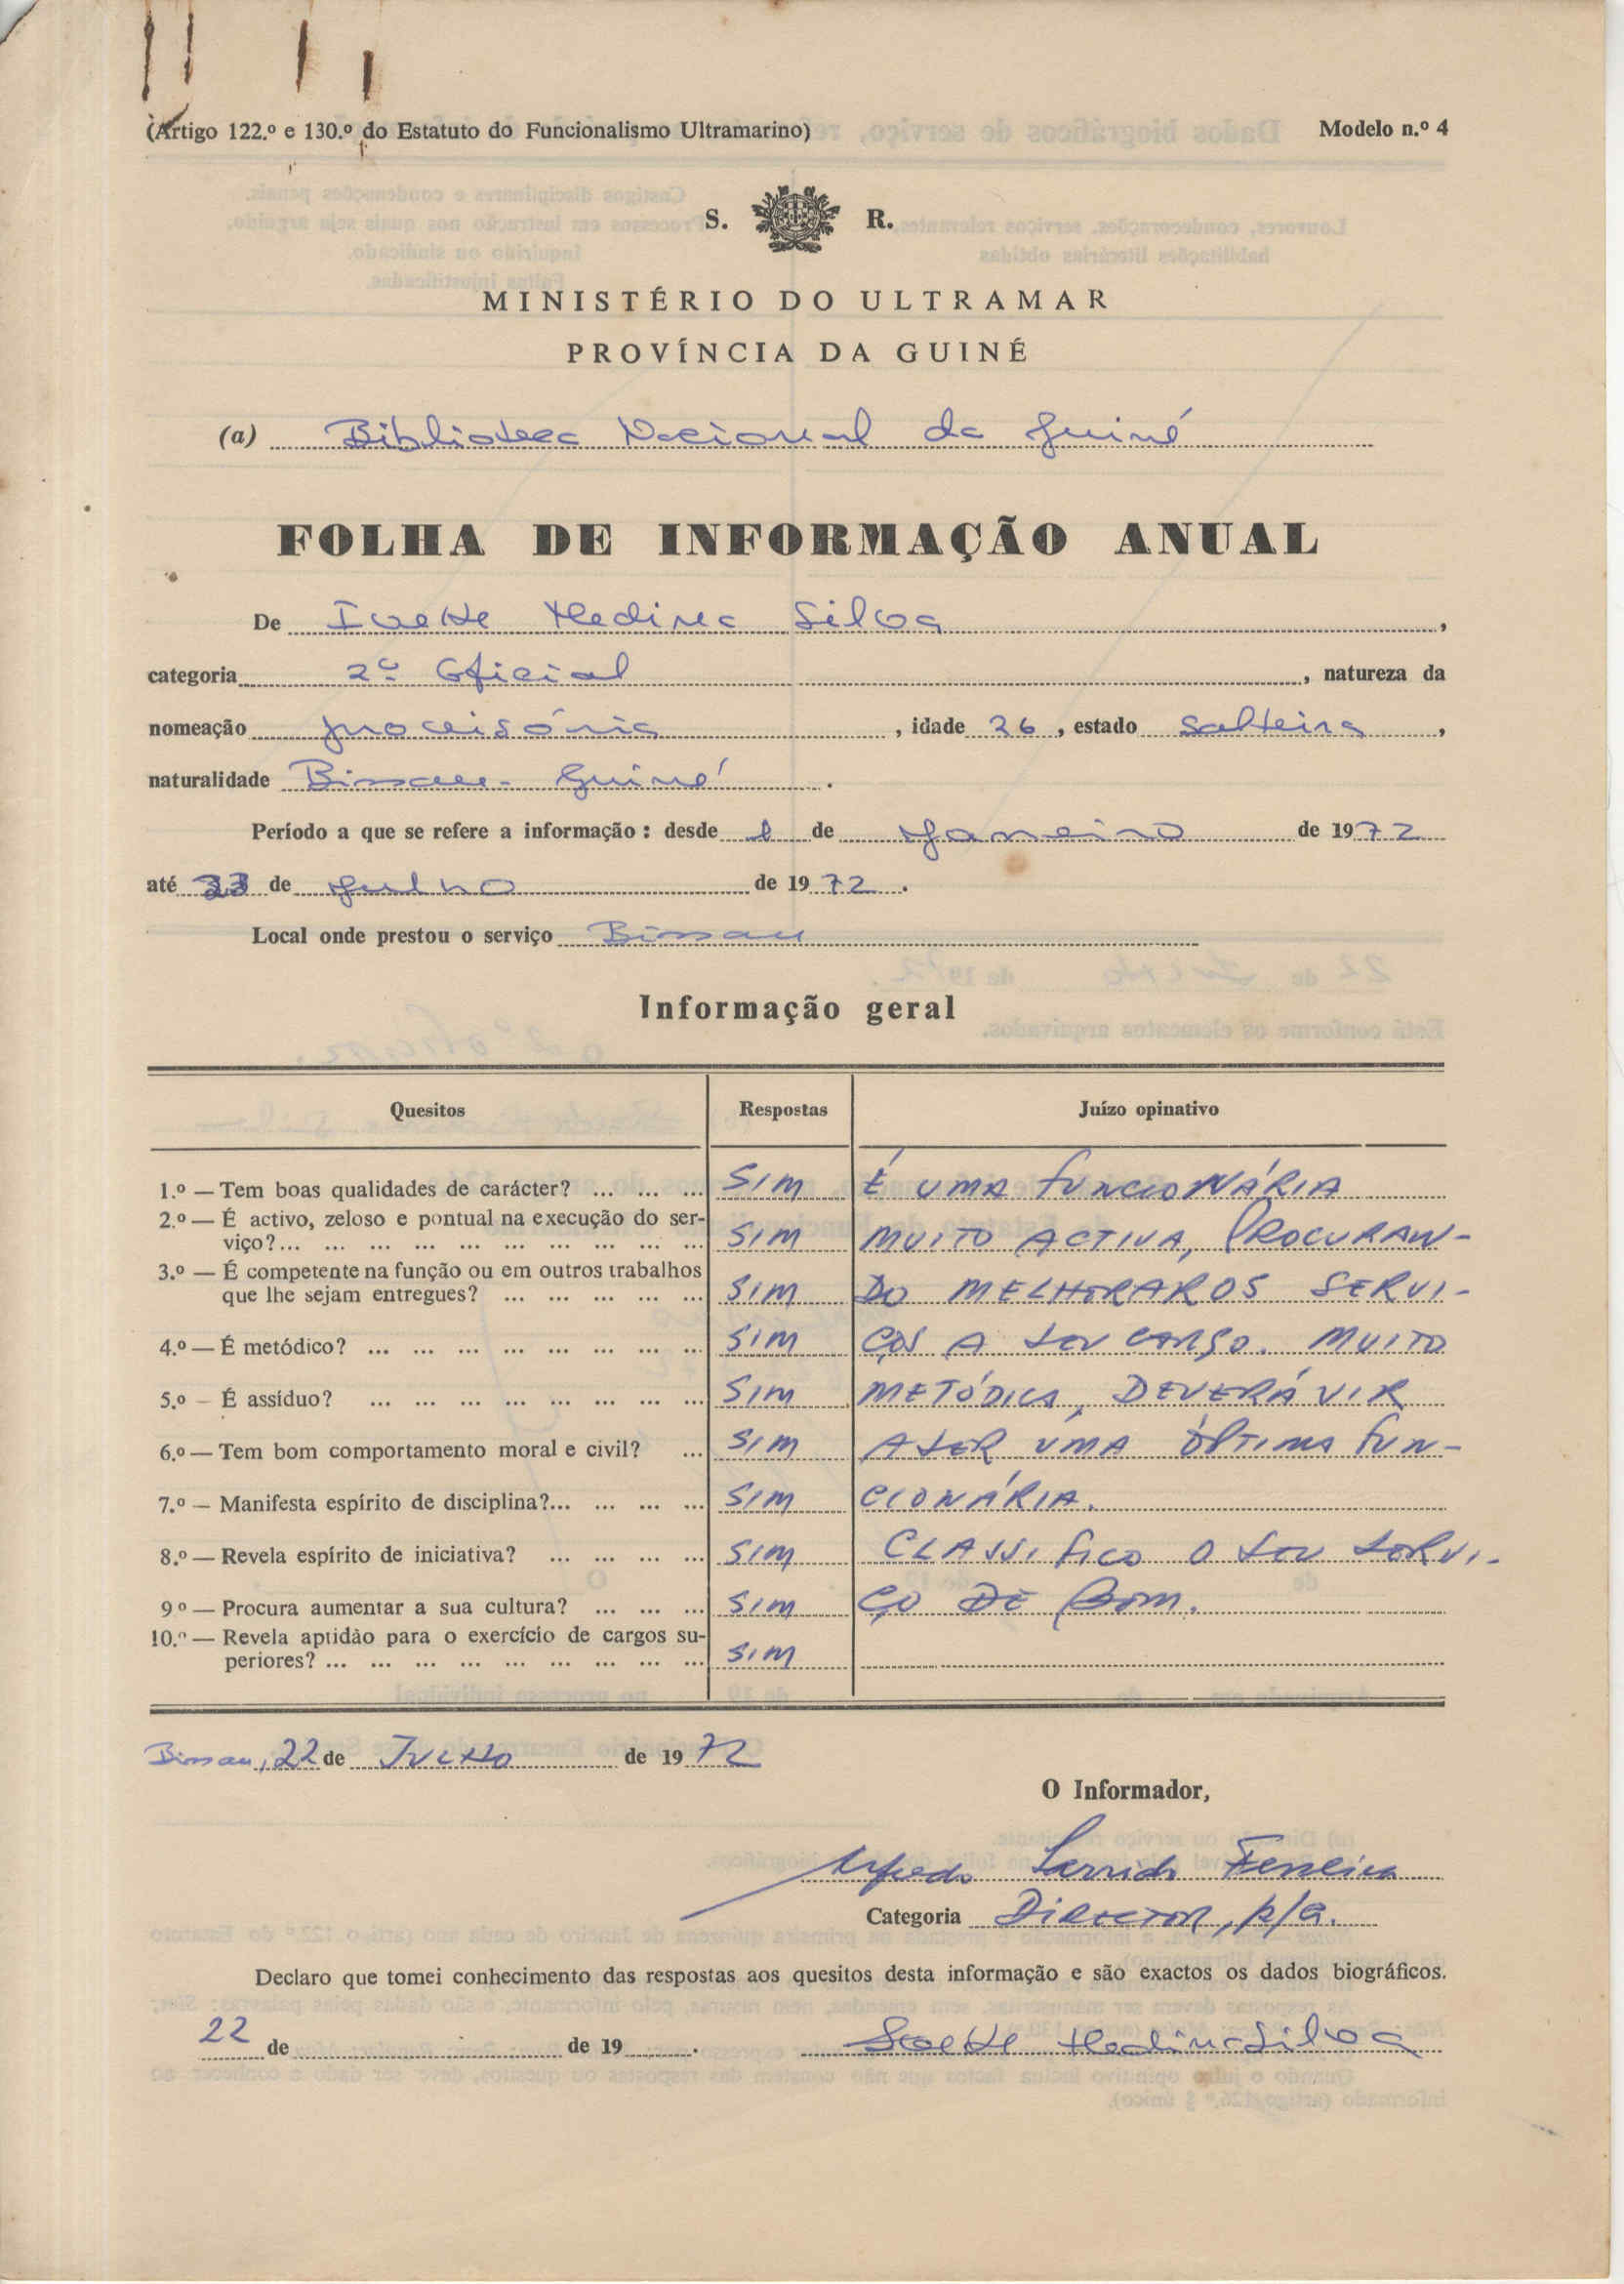 (Artigo 122.º e 130.º do Estatuto do Funcionalismo Ultramarino) Modelo n.º 4
S. R.
MINISTÉRIO DO ULTRAMAR
PROVÍNCIA DA GUINÉ
(a) Biblioteca Nacional da Guiné
FOLHA DE INFORMAÇÃO ANUAL
De Ivette Medina Silva,
categoria 2º Oficial, natureza da
nomeação provisória, idade 26, estado solteira,
naturalidade Bissau - Guiné.
Período a que se refere a informação: desde 1 de Janeiro de 1972
até de Julho de 1972.
Local onde prestou o serviço Bissau
Informação geral
Quesitos Respostas Juízo opinativo
1.º — Tem boas qualidades de carácter? ... ... ... SIM É UMA FUNCIONÁRIA
2.º — É activo, zeloso e pontual na execução do ser-
viço?... ... ... ... ... ... ... ... ... ... SIM MUITO ACTIVA, PROCURAN-
3.º — É competente na função ou em outros trabalhos
que lhe sejam entregues? ... ... ... ... ... SIM DO MELHORAR OS SERVI-
4.º — É metódico? ... ... ... ... ... ... ... ... SIM ÇOS A SEU CARGO. MUITO
5.º – É assíduo? ... ... ... ... ... ... ... ... SIM METÓDICA, DEVERÁ VIR
6.º — Tem bom comportamento moral e civil? ... SIM A SER UMA ÓPTIMA FUN-
7.º — Manifesta espírito de disciplina?... ... ... ... SIM CIONÁRIA.
8.º — Revela espírito de iniciativa? ... ... ... ... SIM CLASSIFICO O SEU SERVI-
9º — Procura aumentar a sua cultura? ... ... ... SIM ÇO DE BOM.
10.º — Revela aptidão para o exercício de cargos su-
periores? ... ... ... ... ... ... ... ... ... SIM
Bissau, 22 de JULHO de 1972
O Informador,
Alfredo Ferreira
Categoria DIRECTOR, p/a.
Declaro que tomei conhecimento das respostas aos quesitos desta informação e são exactos os dados biográficos.
22 de de 19 . Ivette Medina Silva